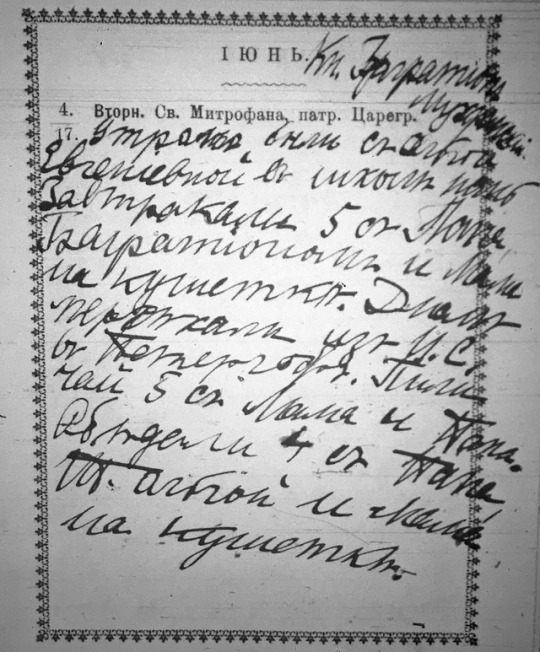 ІЮНЬ. Кн. Багратіонъ
Мухранскій.
4. Вторн. Св. Митрофана, патр. Царегр.
17. Утромъ были съ
Евгеніевной въ школѣ нянь
Завтракали 5 съ Папа
Багратіономъ и Мама
на кушеткѣ. Днемъ
переѣхали изъ Ц. С.
въ Петергофъ. Пили
чай 5 съ Мама и Папа.
Обѣдали 4 съ Папа
и Мама
на кушеткѣ.